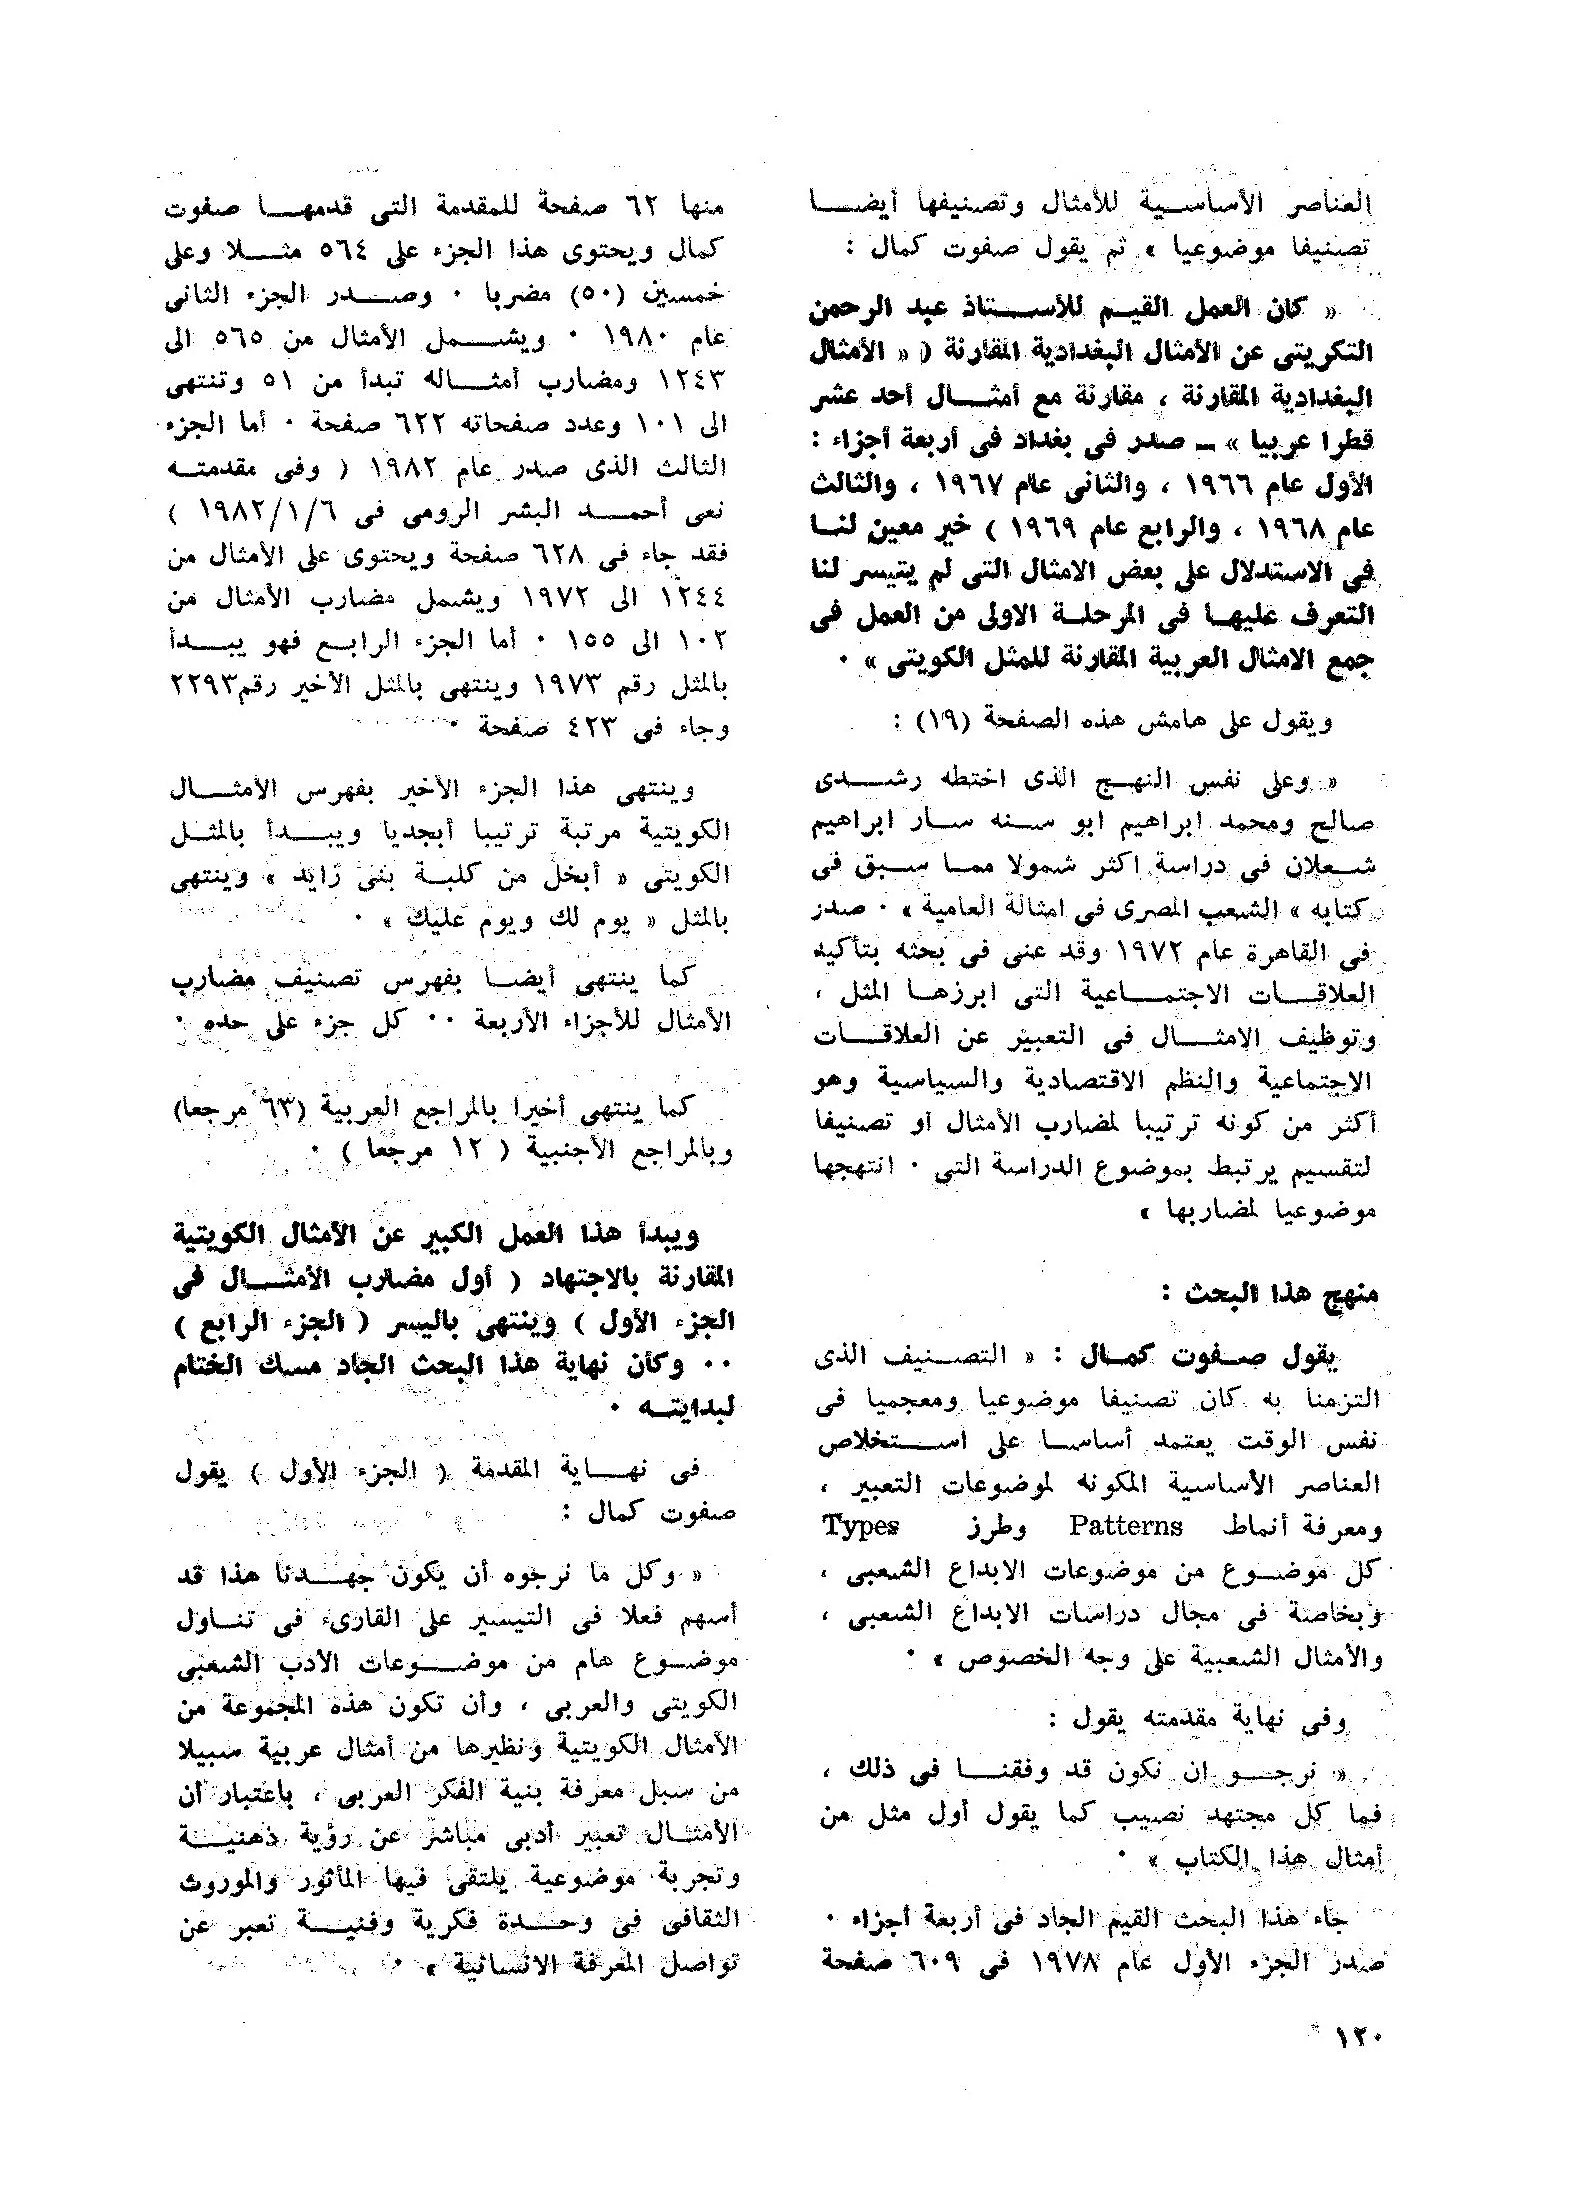 العناصر الأساسية للأمثال وتصنيفها أيضا
تصنيفا موضوعيا » ثم يقول صفوت كمال :
« كان العمل القيم للأستاذ عبد الرحمن
التكريتى عن الأمثال البغدادية المقارنة ( « الأمثال
البغدادية المقارنة ، مقارنة مع أمثال أحد عشر
قطرا عربيا » ــ صدر فى بغداد فى أربعة أجزاء :
الأول عام ١٩٦٦ ، والثانى عام ١٩٦٧ ، والثالث
عام ١٩٦٨ ، والرابع عام ١٩٦٩ ) خير معين لنا
فى الاستدلال على بعض الامثال التى لم يتيسر لنا
التعرف عليها فى المرحلة الاولى من العمل فى
جمع الامثال العربية المقارنة للمثل الكويتى » ٠
ويقول على هامش هذه الصفحة (١٩) :
« وعلى نفس النهج الذى اختطه رشدى
صالح ومحمد ابراهيم ابو سنه سار ابراهيم
شعلان فى دراسة اكثر شمولا مما سبق فى
كتابه » الشعب المصرى فى امثالة العامية » ٠ صدر
فى القاهرة عام ١٩٧٢ وقد عنى فى بحثه بتأكيد
العلاقات الاجتماعية التى ابرزها المثل ،
وتوظيف الامثال فى التعبير عن العلاقات
الاجتماعية والنظم الاقتصادية والسياسية وهو
أكثر من كونه ترتيبا لمضارب الأمثال او تصنيفا
لتقسيم يرتبط بموضوع الدراسة التى ٠ انتهجها
موضوعيا لمضاربها »
منهج هذا البحث :
يقول صفوت كمال : « التصنيف الذى
التزمنا به كان تصنيفا موضوعيا ومعجميا فى
نفس الوقت يعتمد أساسا على استخلاص
العناصر الأساسية المكونه لموضوعات التعبير ،
ومعرفة أنماط Patterns وطرز Types
كل موضوع من موضوعات الابداع الشعبى ،
وبخاصة فى مجال دراسات الابداع الشعبى ،
والأمثال الشعبية على وجه الخصوص » ٠
وفى نهاية مقدمته يقول :
« نرجو ان نكون قد وفقنا فى ذلك ،
فما كل مجتهد نصيب كما يقول أول مثل من
أمثال هذا الكتاب » ٠
جاء هذا البحث القيم الجاد فى أربعة أجزاء ٠
صدر الجزء الأول عام ١٩٧٨ فى ٦٠٩ صفحة
منها ٦٢ صفحة للمقدمة التى قدمها صفوت
كمال ويحتوى هذا الجزء على ٥٦٤ مثلا وعلى
خمسين (٥٠) مضربا ٠ وصدر الجزء الثانى
عام ١٩٨٠ ٠ ويشمل الأمثال من ٥٦٥ الى
١٢٤٣ ومضارب أمثاله تبدأ من ٥١ وتنتهى
الى ١٠١ وعدد صفحاته ٦٢٢ صفحة ٠ أما الجزء
الثالث الذى صدر عام ١٩٨٢ ( وفى مقدمته
نعى أحمد البشر الرومى فى ١٩٨٢/١/٦ )
فقد جاء فى ٦٢٨ صفحة ويحتوى على الأمثال من
١٢٤٤ الى ١٩٧٢ ويشمل مضارب الأمثال من
١٠٢ الى ١٥٥ ٠ أما الجزء الرابع فهو يبدأ
بالمثل رقم ١٩٧٣ وينتهى بالمثل الأخير رقم ٢٢٩٣
وجاء فى ٤٢٣ صفحة ٠
وينتهى هذا الجزء الأخير بفهرس الأمثال
الكويتية مرتبة ترتيبا أبجديا ويبدأ بالمثل
الكويتى « أبخل من كلبة بنى زايد » وينتهى
بالمثل « يوم لك ويوم عليك » ٠
كما ينتهى أيضا بفهرس تصنيف مضارب
الأمثال للأجزاء الأربعة ٠٠ كل جزء على حده ٠
كما ينتهى أخيرا بالمراجع العربية (٦٣ مرجعا)
وبالمراجع الأجنبية ( ١٢ مرجعا ) ٠
ويبدأ هذا العمل الكبير عن الأمثال الكويتية
المقارنة بالاجتهاد ( أول مضارب الأمثال فى
الجزء الأول ) وينتهى باليسر ( الجزء الرابع )
٠٠ وكأن نهاية هذا البحث الجاد مسك الختام
لبدايته ٠
فى نهاية المقدمة ( الجزء الأول ) يقول
صفوت كمال :
« وكل ما نرجوه أن يكون جهدنا هذا قد
أسهم فعلا فى التيسير على القارىء فى تناول
موضوع هام من موضوعات الأدب الشعبى
الكويتى والعربى ، وأن تكون هذه المجموعة من
الأمثال الكويتية ونظيرها من أمثال عربية سبيلا
من سبل معرفة بنية الفكر العربى ، باعتبار أن
الأمثال تعبير أدبى مباشر عن رؤية ذهنية
وتجربة موضوعية يلتقى فيها المأثور والموروث
الثقافى فى وحدة فكرية وفنية تعبر عن
تواصل المعرفة الانسانية » ٠
١٢٠